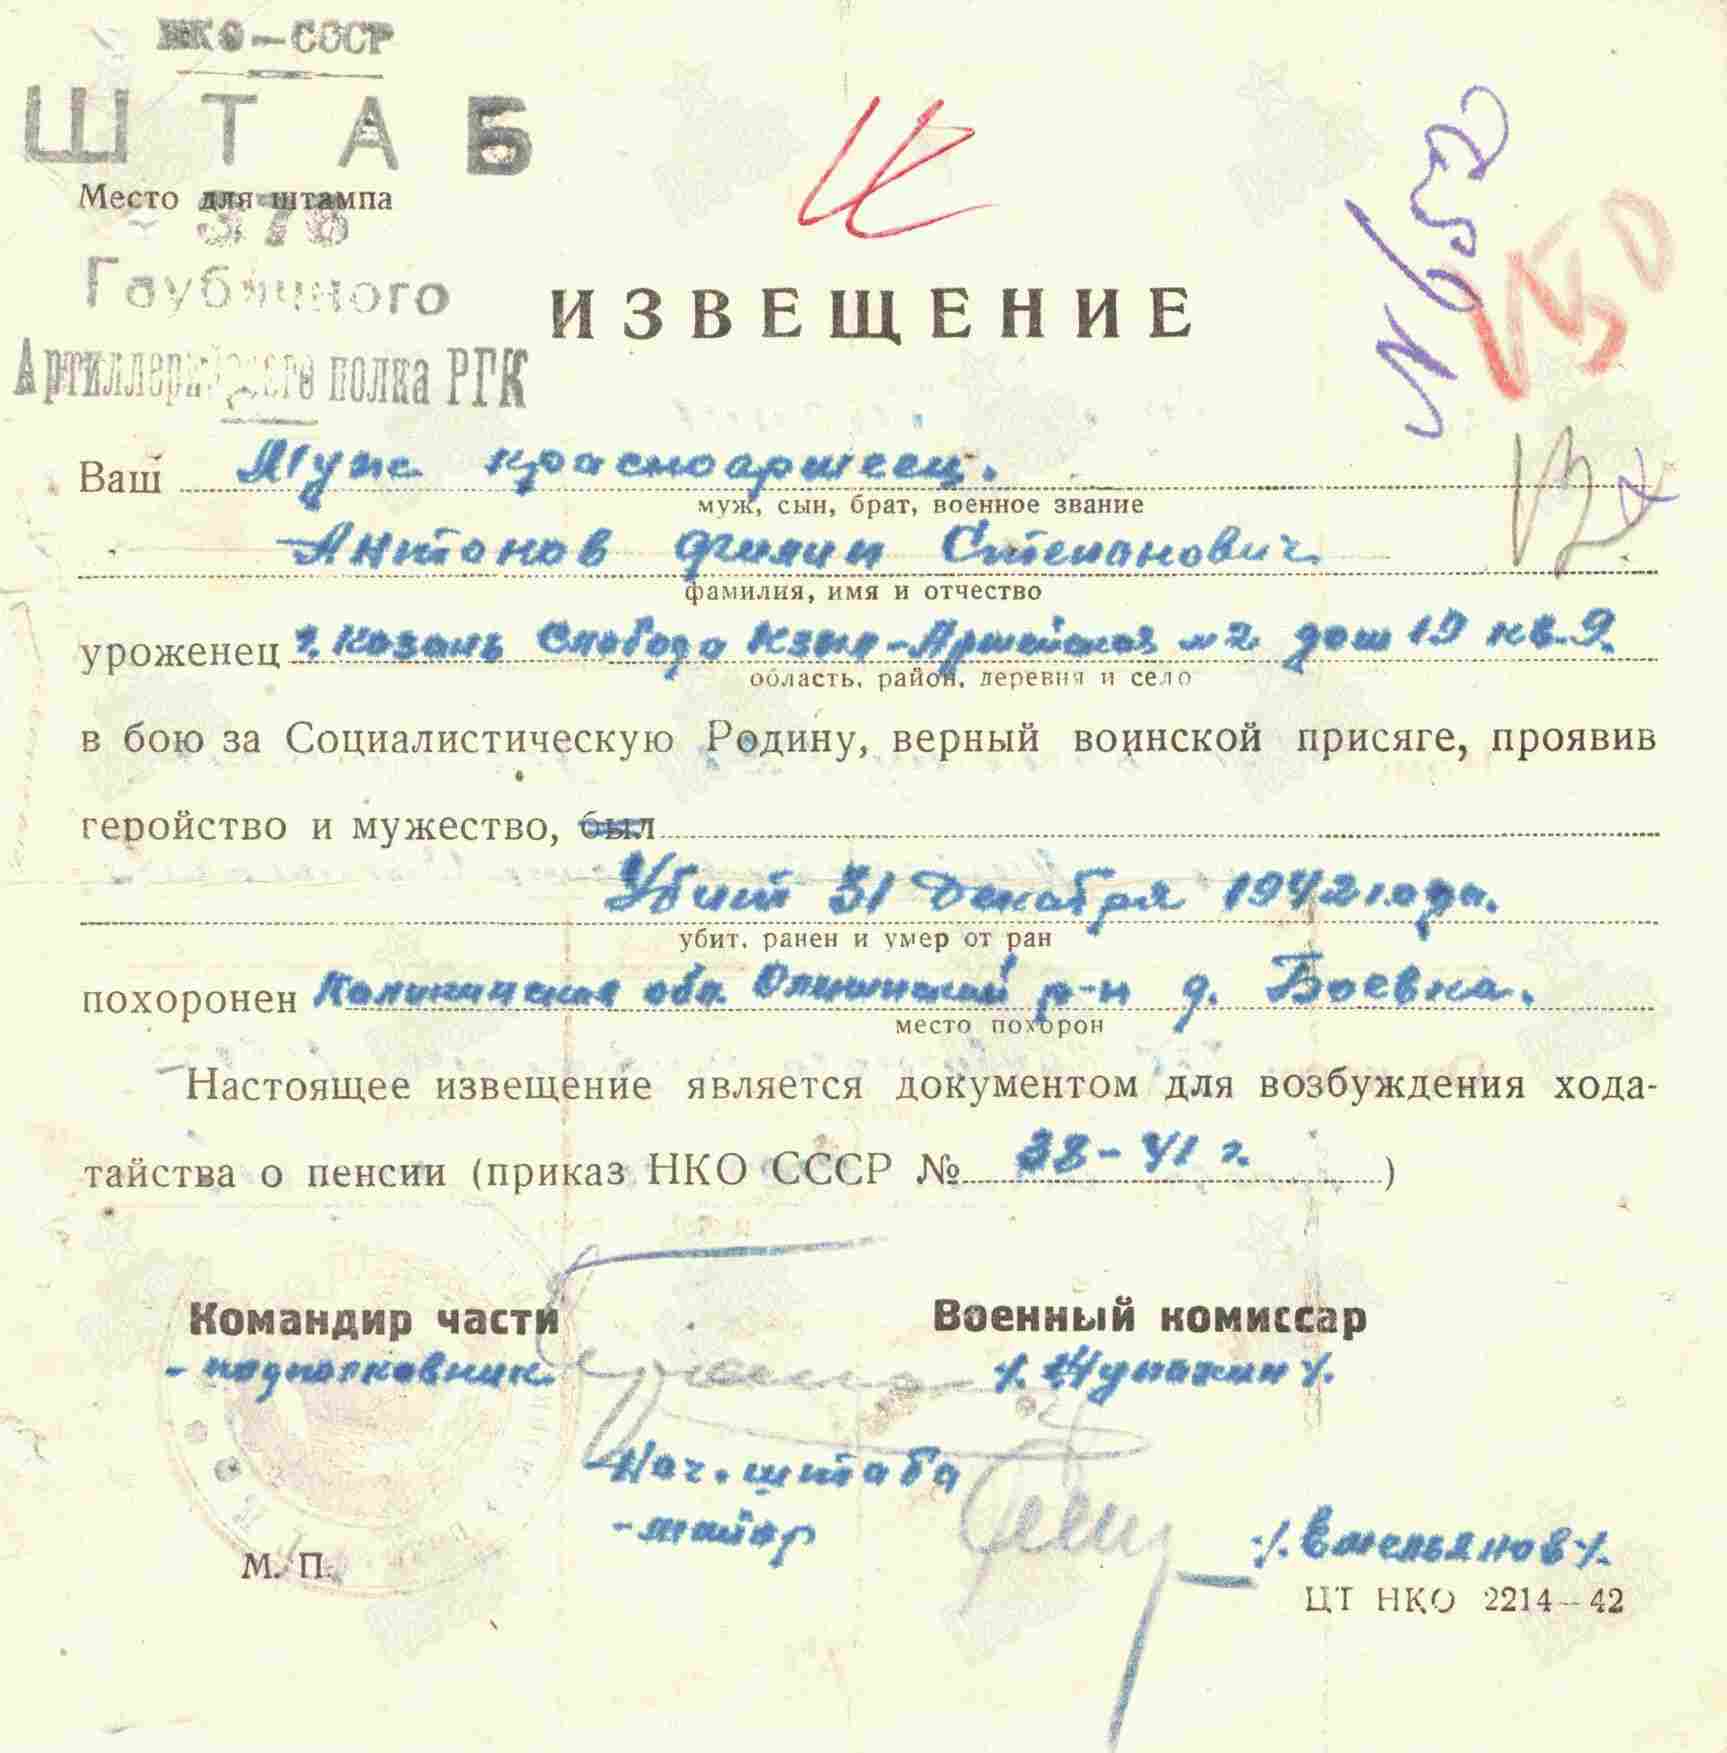 НКО-СССР
ШТАБ
Место для штампа
376
Гаубичного
Артиллерийского полка РГК
ИЗВЕЩЕНИЕ
N 653
150
Ваш Муж красноармеец.
муж, сын, брат, военное звание
Антонов Филип Степанович
фамилия, имя и отчество
уроженец г. Казань Слобода Кзыл-Армейская N2 дом 19 кв. 9.
область, район, деревня и село
в бою за Социалистическую Родину, верный воинской присяге, проявив
геройство и мужество, был
Убит 31 Декабря 1942 года.
убит, ранен и умер от ран
похоронен Калининская обл. Оленинский р-н д. Боевка.
место похорон
Настоящее извещение является документом для возбуждения хода-
тайства о пенсии (приказ НКО СССР № 38-41 г.)
Командир части Военный комиссар
- подполковник
Нач. штаба
- майор /. Емельянов /.
М. П.
ЦТ НКО 2214-42